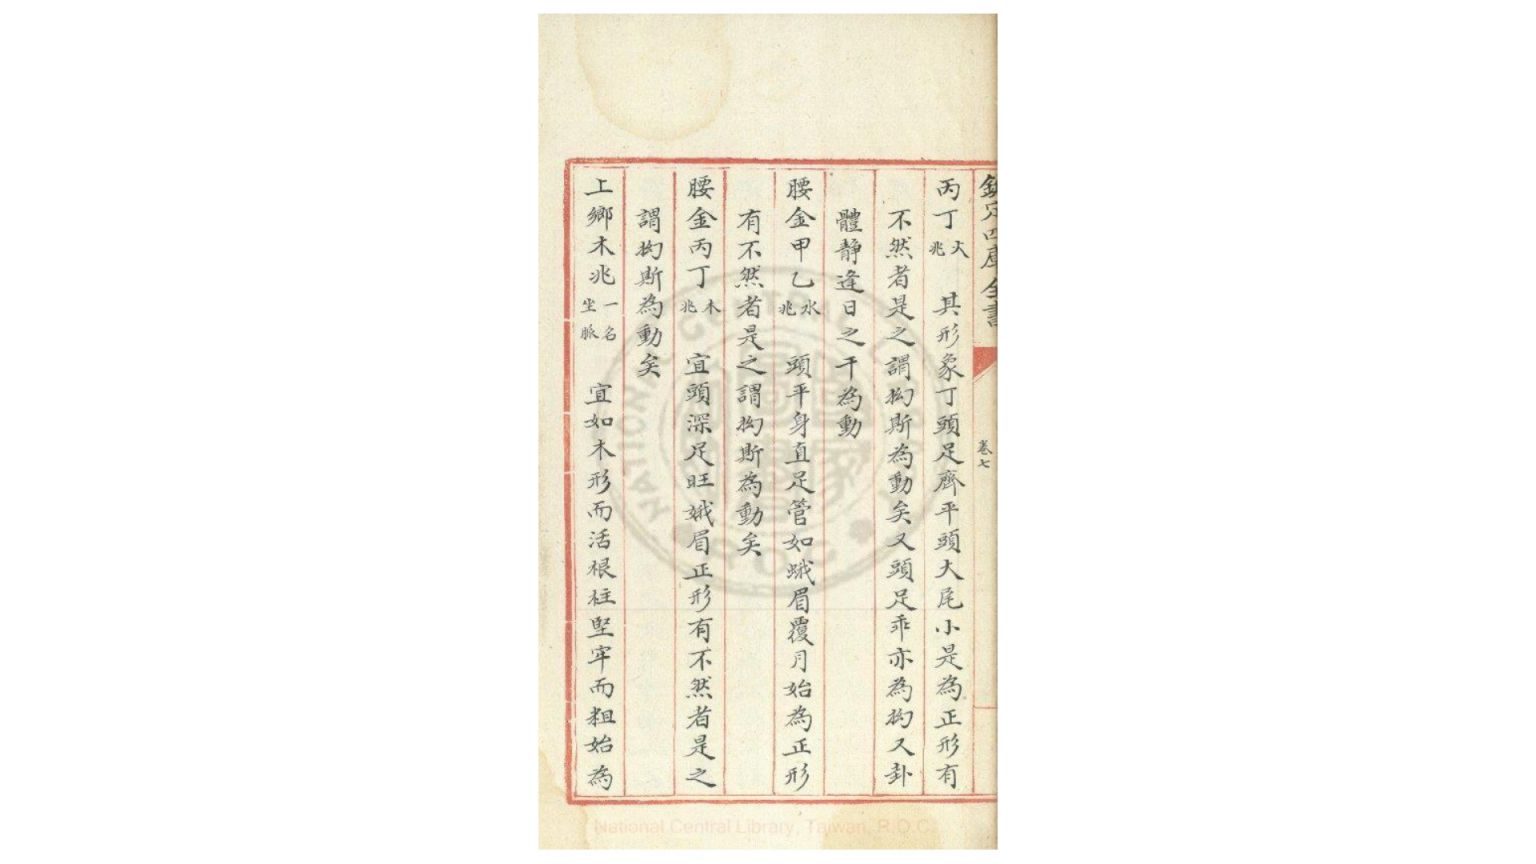 欽定四庫全書
卷七
丙丁火兆 其形象丁頭足齊平頭大尾小是為正形有
不然者是之謂抝斯為動矣又頭足乖亦為抝又卦
體靜逢日之干為動
腰金甲乙水兆 頭平身直足管如蛾眉覆月始為正形
有不然者是之謂抝斯為動矣
腰金丙丁木兆 宜頭深足旺娥眉正形有不然者是之
謂抝斯為動矣
上鄉木兆一名坐脈 宜如木形而活根柱堅牢而粗始為
National Central Library, Taiwan, R.O.C.